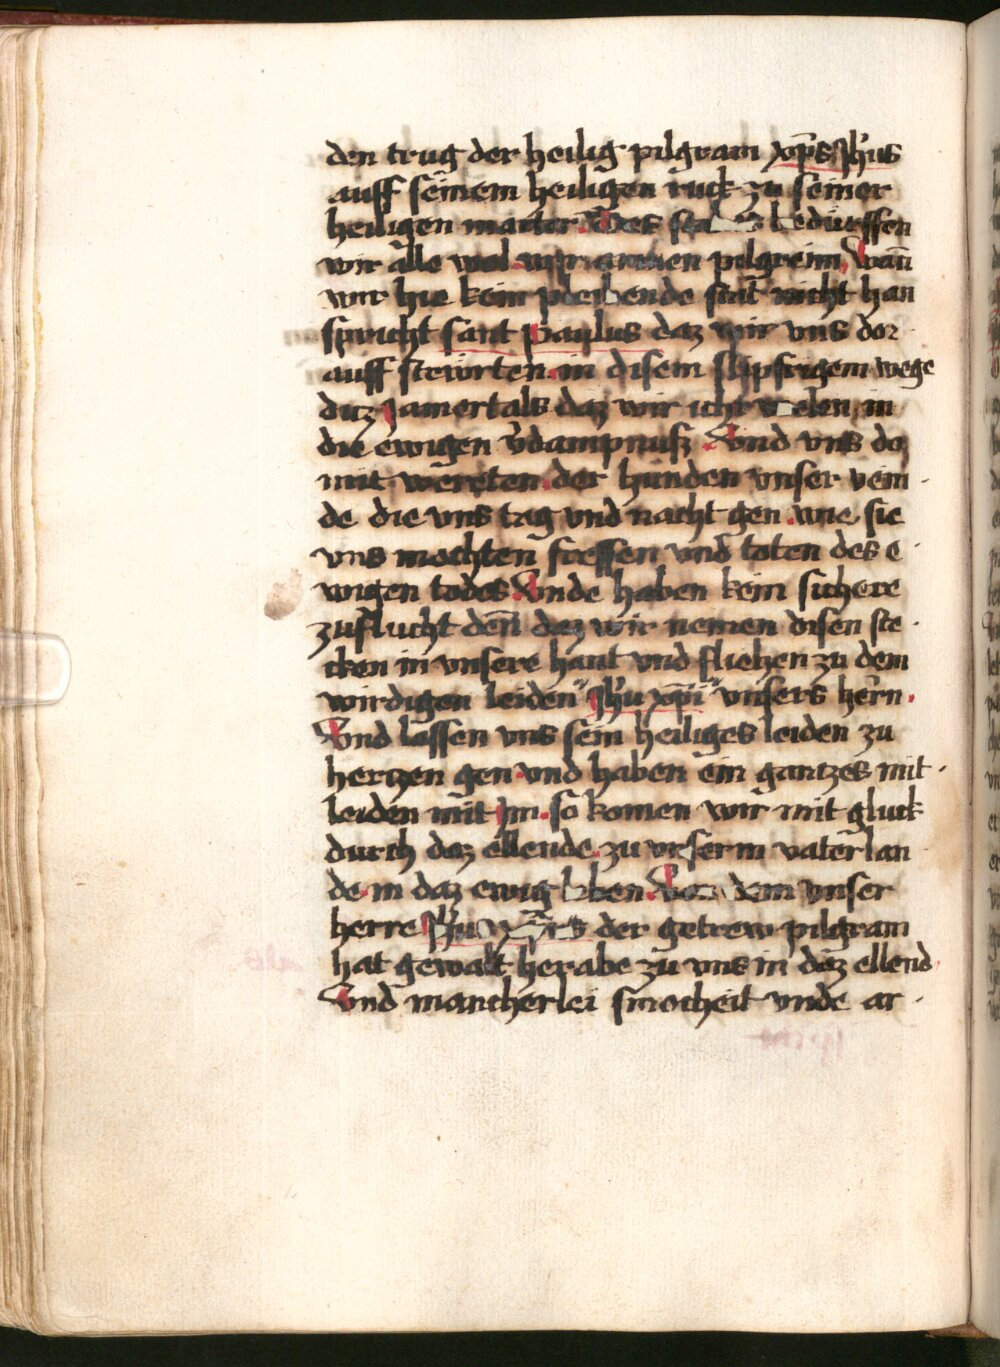 den trug der heilig pilgram xp̄s Jh̄us
auff seinem heiligen ruck zu seiner
heiligen marter. Des bedürffen
wir alle wol pilgreim, Wañ
wir hie kein pleibende stat nicht han
spricht sant Paulus daz wir vns dor
auff stewrten. in disem slipfrigem wege
diz Jamertals daz wir icht in
die ewigen v̄dampnuß. Vnd vns do
mit wereten. der hunden vnser vein
de die vns tag vnd nacht gen. wie sie
vns mochten fressen vnd toten des e
wigen todes. Vnde haben kein sichere
zuflucht deñ daz wir nemen disen ste
cken in vnsere hant vnd fliehen zu dem
wirdigen leiden "Jh̄u xp̄i" vnsers hern.
Vnd lossen vns sein heiliges leiden zu
hertzen gen. vnd haben ein gantzes mit
leiden mit Jm. so komen wir mit gluck
durch daz ellende. zu vnserm vaterlan
de. in daz ewig leben. dem vnser
herre Jh̄us der getrew pilgram
hat gewalt herabe zu vns in daz ellend.
Vnd mancherlei smocheit vnde ar